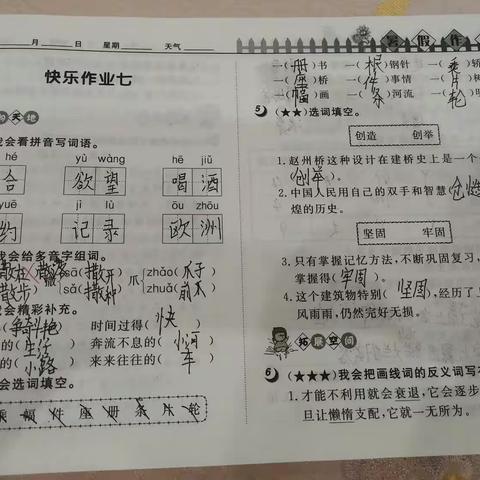 月 日 星期 天气
快乐作业七
天地
我会看拼音写词语。
hé yù wàng hē jiǔ
合 欲望 喝酒
yuē jì lù ōu zhōu
约 记录 欧洲
我会给多音字组词。
sā(撒开) 爪 zhǎo(爪子)
散步 sǎ(撒种) zhuǎ(
我会精彩补充。
时间过得(快)
奔流不息的(小河)
小路 来来往往的(车)
会选词填空。
乘 幅 件 座 册 条 片 轮
暑假作
一(册)书 一(根)钢针 一(乘)轿
一(座)桥 一(件)事情 一(片)树
一(幅)画 一(条)河流 一(轮)明
5 (★★)选词填空。
创造 创举
1. 赵州桥这种设计在建桥史上是一个
(创举)。
2. 中国人民用自己的双手和智慧(创造
煌的历史。
坚固 牢固
3. 只有掌握记忆方法,不断巩固复习,
掌握得(牢固)。
4. 这个建筑物特别(坚固),经历了
风雨雨,仍然完好无损。
拓展空间
6 (★★★)我会把画线词的反义词写在
1. 才能不利用就会衰退,它会逐步
旦让懒惰支配,它就一无所为。